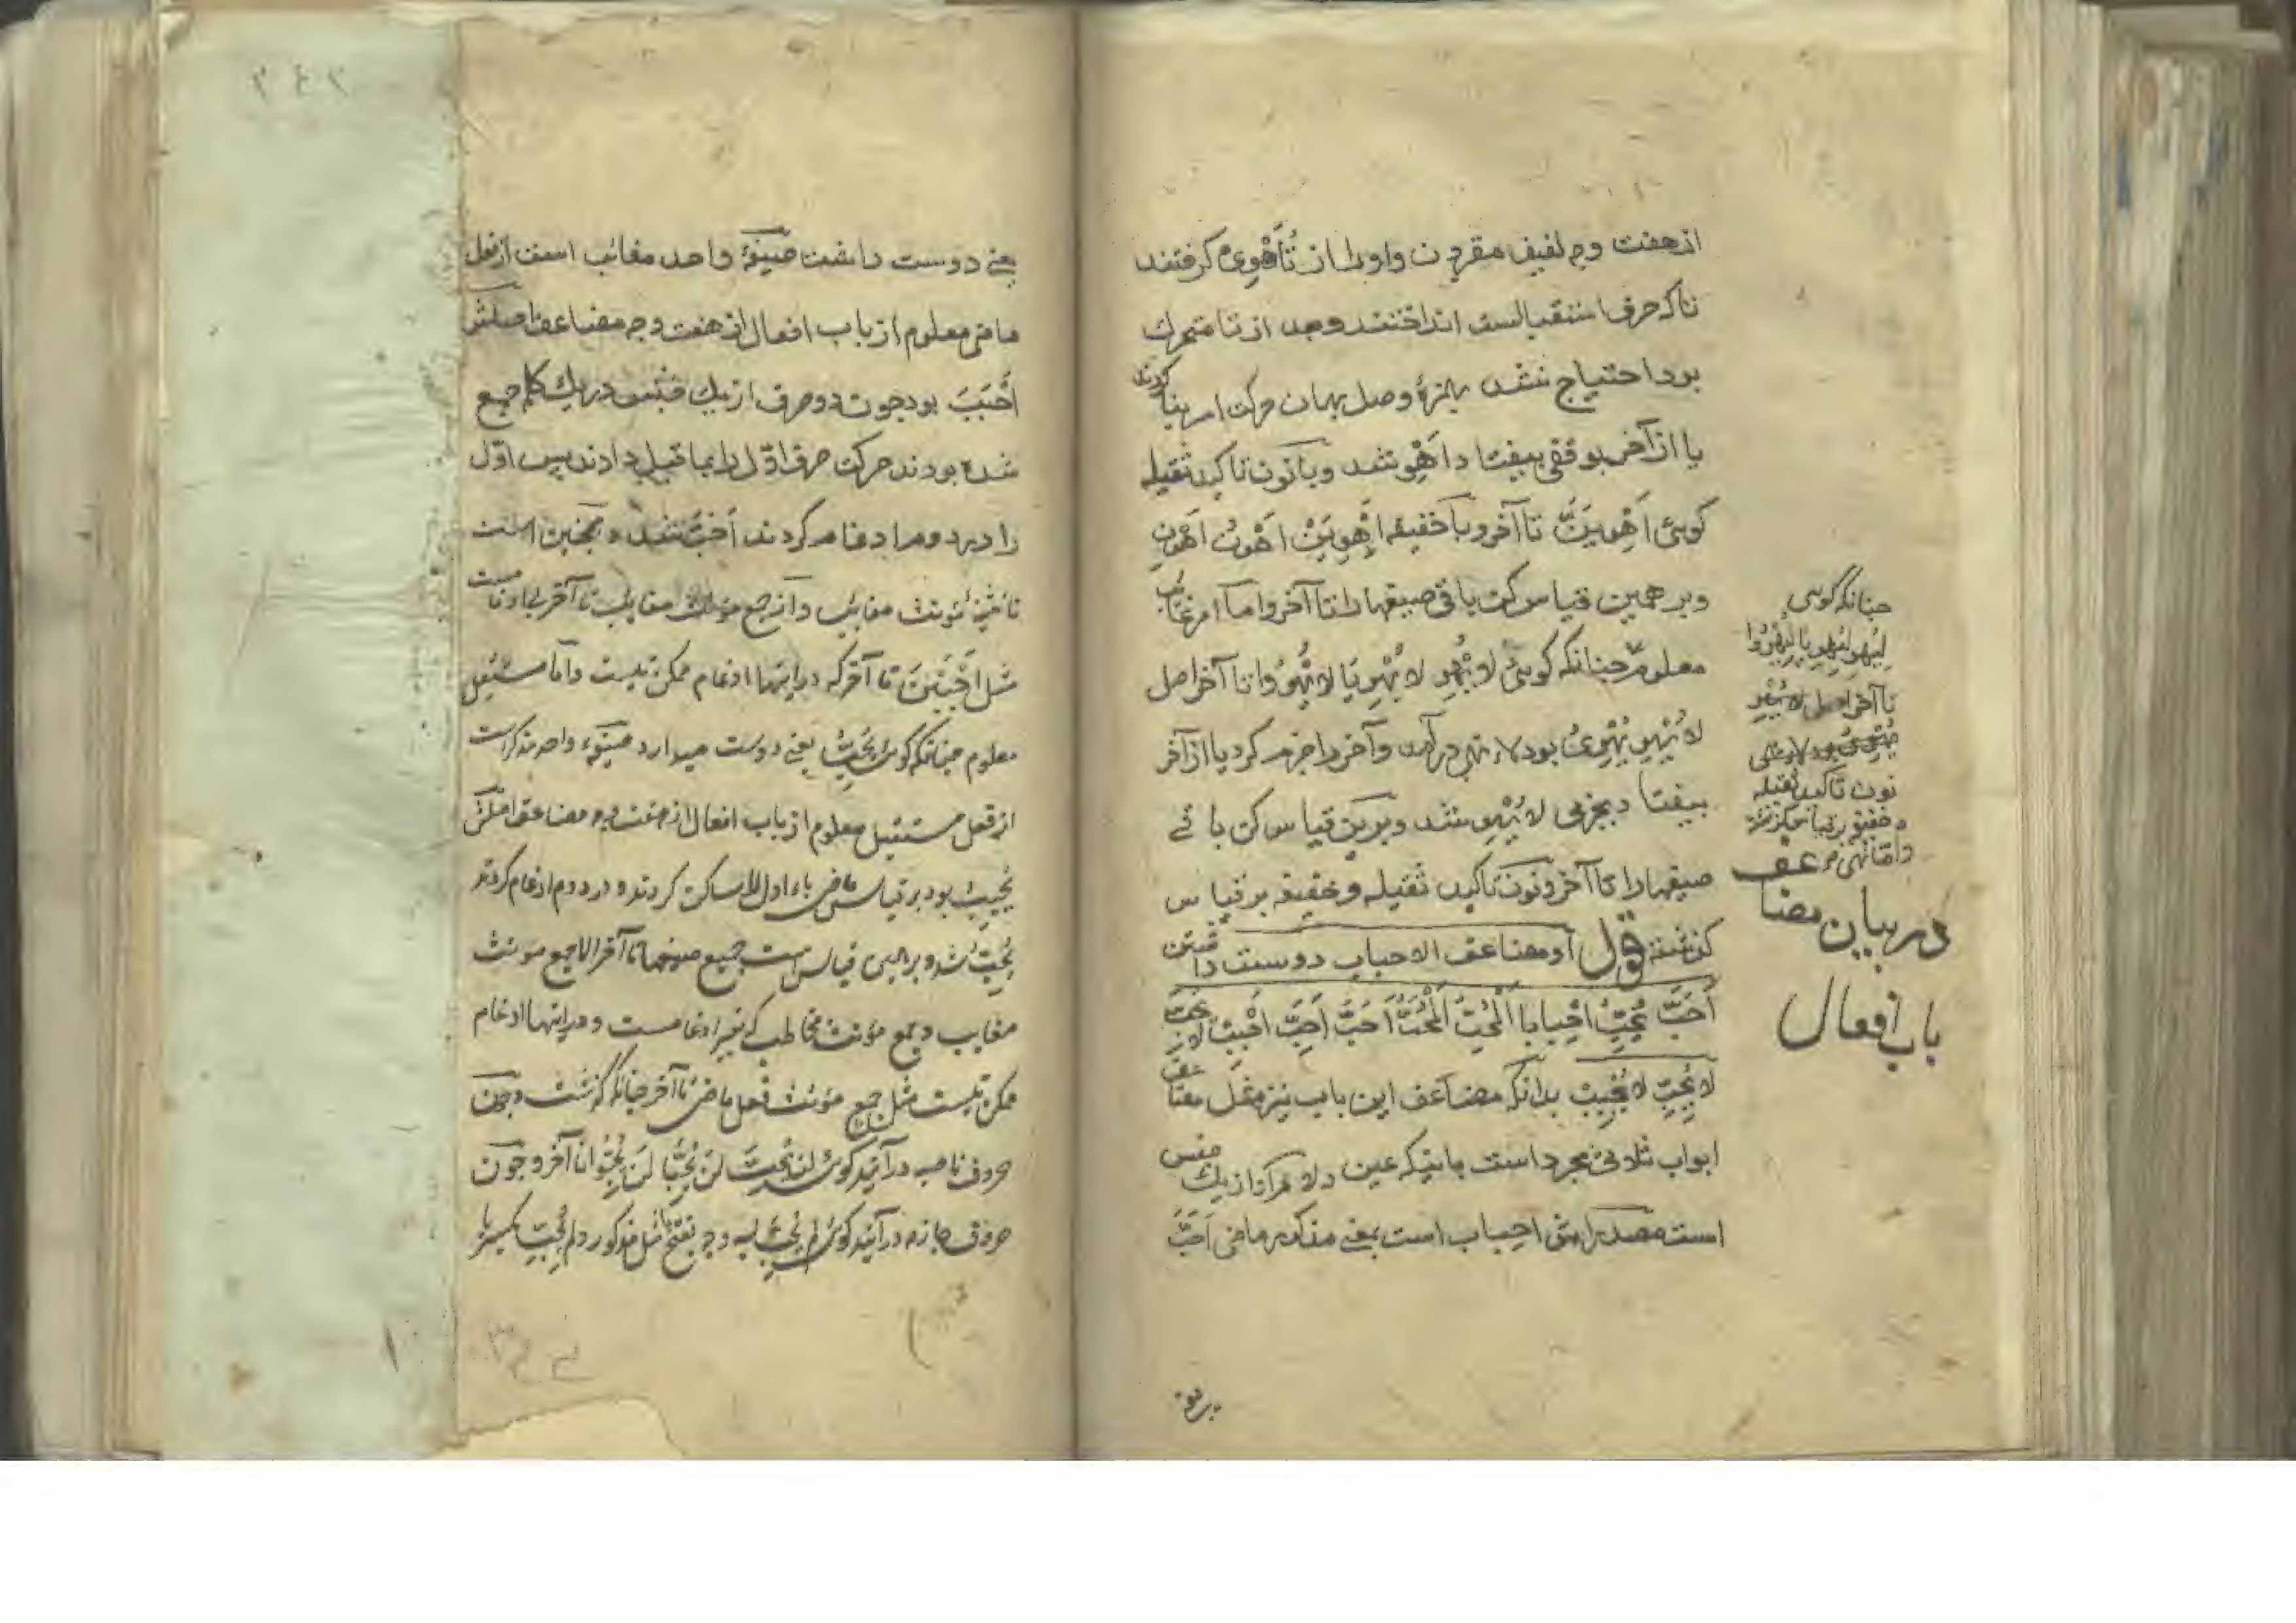 از هفت وجه لفیف مقرون واو را از تُأَهْوِیُ گرفتند
تا که حرف استقبالست انداختند و بعد از تا متحرک
بود احتیاج نشد بهمزۀ وصل بهمان حرکت امر بنا کردند
یا از آخر بوقفی بیفتا د اَهْوِ شد و با نون تاکید ثقیله
کوئی اَهْوِیَنَّ تا آخر و با خفیفه اَهْوِیَنْ اَهْوُنْ اَهْوِنْ
و بر همین قیاس کن باقی صیغها را تا آخر و اما امر غائب
معلوم چنانکه کوئی لا یُهْوِ لا یُهْوِیَا لا یُهْوُوا تا آخر اصل
لا یُهْوِ یُهْوِیُ بود لاء نهی در آمد و آخر را جزم کرد یا از آخر
بیفتا د بجزمی لا یُهْوِ شد و برین قیاس کن باقی
صیغها را تا آخر و نون تاکید ثقیله و خفیفه بر قیاس
کذشته قول او مضاعف الاحباب دوست داشتن
اَحَبَّ یُحِبُّ اِحْبابا اَلْمُحِبُّ اَلْمُحَبُّ اَحِبَّ اَحِبِّ اَحْبِبْ
لا یُحِبِّ لا یُحْبِبْ بدانکه مضاعف این باب نیز مثل مضاعف
ابواب ثلاثی مجرد است بانیکه عین و لام او از یک جنس
است مصدرش احباب است بمعنی مذکور ماضی اَحَبَّ
چنانکه کوئی
لِیُهْوِ لِیُهْوِیَا لِیُهْوُوا
تا آخر اصل
نون تاکید ثقیله
و خفیفه بر قیاس کذشته
و اما نهی
در بیان مضاعف
باب افعال
یعنی دوست داشت صیغۀ واحد مغائب است از فعل
ماضی معلوم از باب افعال از هفت وجه مضاعف اصلش
اَحْبَبَ بود چون دو حرف از یک جنس در یک کلمه جمع
شده بودند حرکت حرف اوّل را بما قبل دادند پس اوّل
را در دوم ادغام کردند اَحَبَّ شد و همچنین است
تا تثنیۀ مؤنث مغایب و از جمع مؤنث مغایب تا آخر بی ادغامست
مثل اَحْبَبْنَ تا آخر که در اینها ادغام ممکن نیست و اما مستقبل
معلوم چنانکه کوئی یُحِبُّ یعنی دوست میدارد صیغۀ واحد مذکر است
از فعل مستقبل معلوم از باب افعال از هفت وجه مضاعف اصلش
یُحْبِبُ بود بر قیاس ماضی باء اول را ساکن کردند و در دوم ادغام کردند
یُحِبُّ شد و بر همین قیاس است جمیع صیغها تا آخر الا جمع مؤنث
مغایب و جمع مؤنث مخاطب که بغیر ادغامست و در اینها ادغام
ممکن نیست مثل جمع مؤنث فعل ماضی تا آخر چنانکه کذشت و چون
حروف ناصبه در آید کوئی لَنْ یُحِبَّ لَنْ یُحِبَّا لَنْ یُحِبُّوا تا آخر و چون
حروف جازمه در آید کوئی لم یُحِبَّ بسه وجه بفتح مثل مذکور و لم یُحِبِّ بکسر با